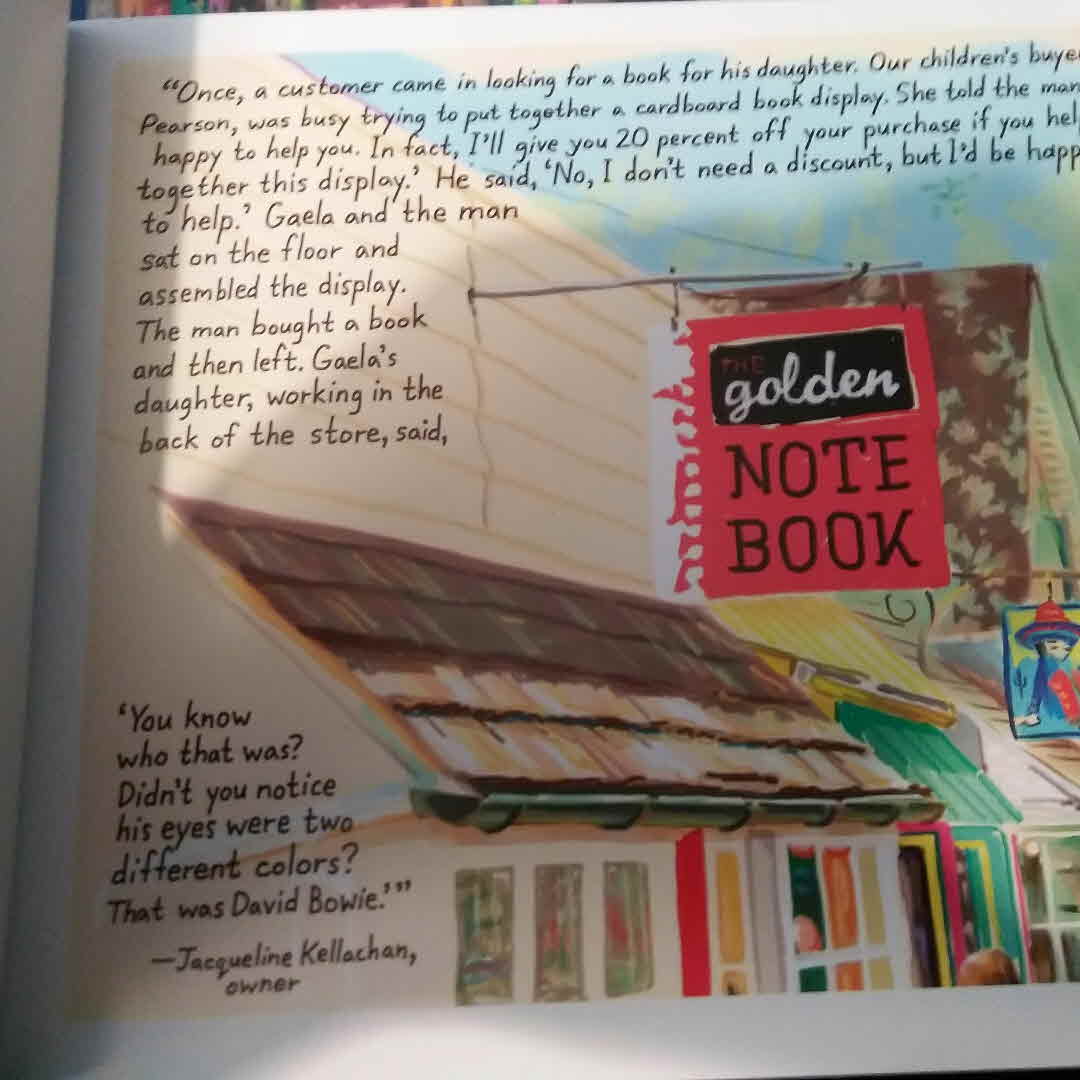 “Once, a customer came in looking for a book for his daughter. Our children's buyer
Pearson, was busy trying to put together a cardboard book display. She told the man
happy to help you. In fact, I'll give you 20 percent off your purchase if you hel
together this display.’ He said, ‘No, I don't need a discount, but I'd be happ
to help.’ Gaela and the man
sat on the floor and
assembled the display.
The man bought a book
and then left. Gaela's
daughter, working in the
back of the store, said,
THE
golden
NOTE
BOOK
‘You know
who that was?
Didn't you notice
his eyes were two
different colors?
That was David Bowie.’”
—Jacqueline Kellachan,
owner